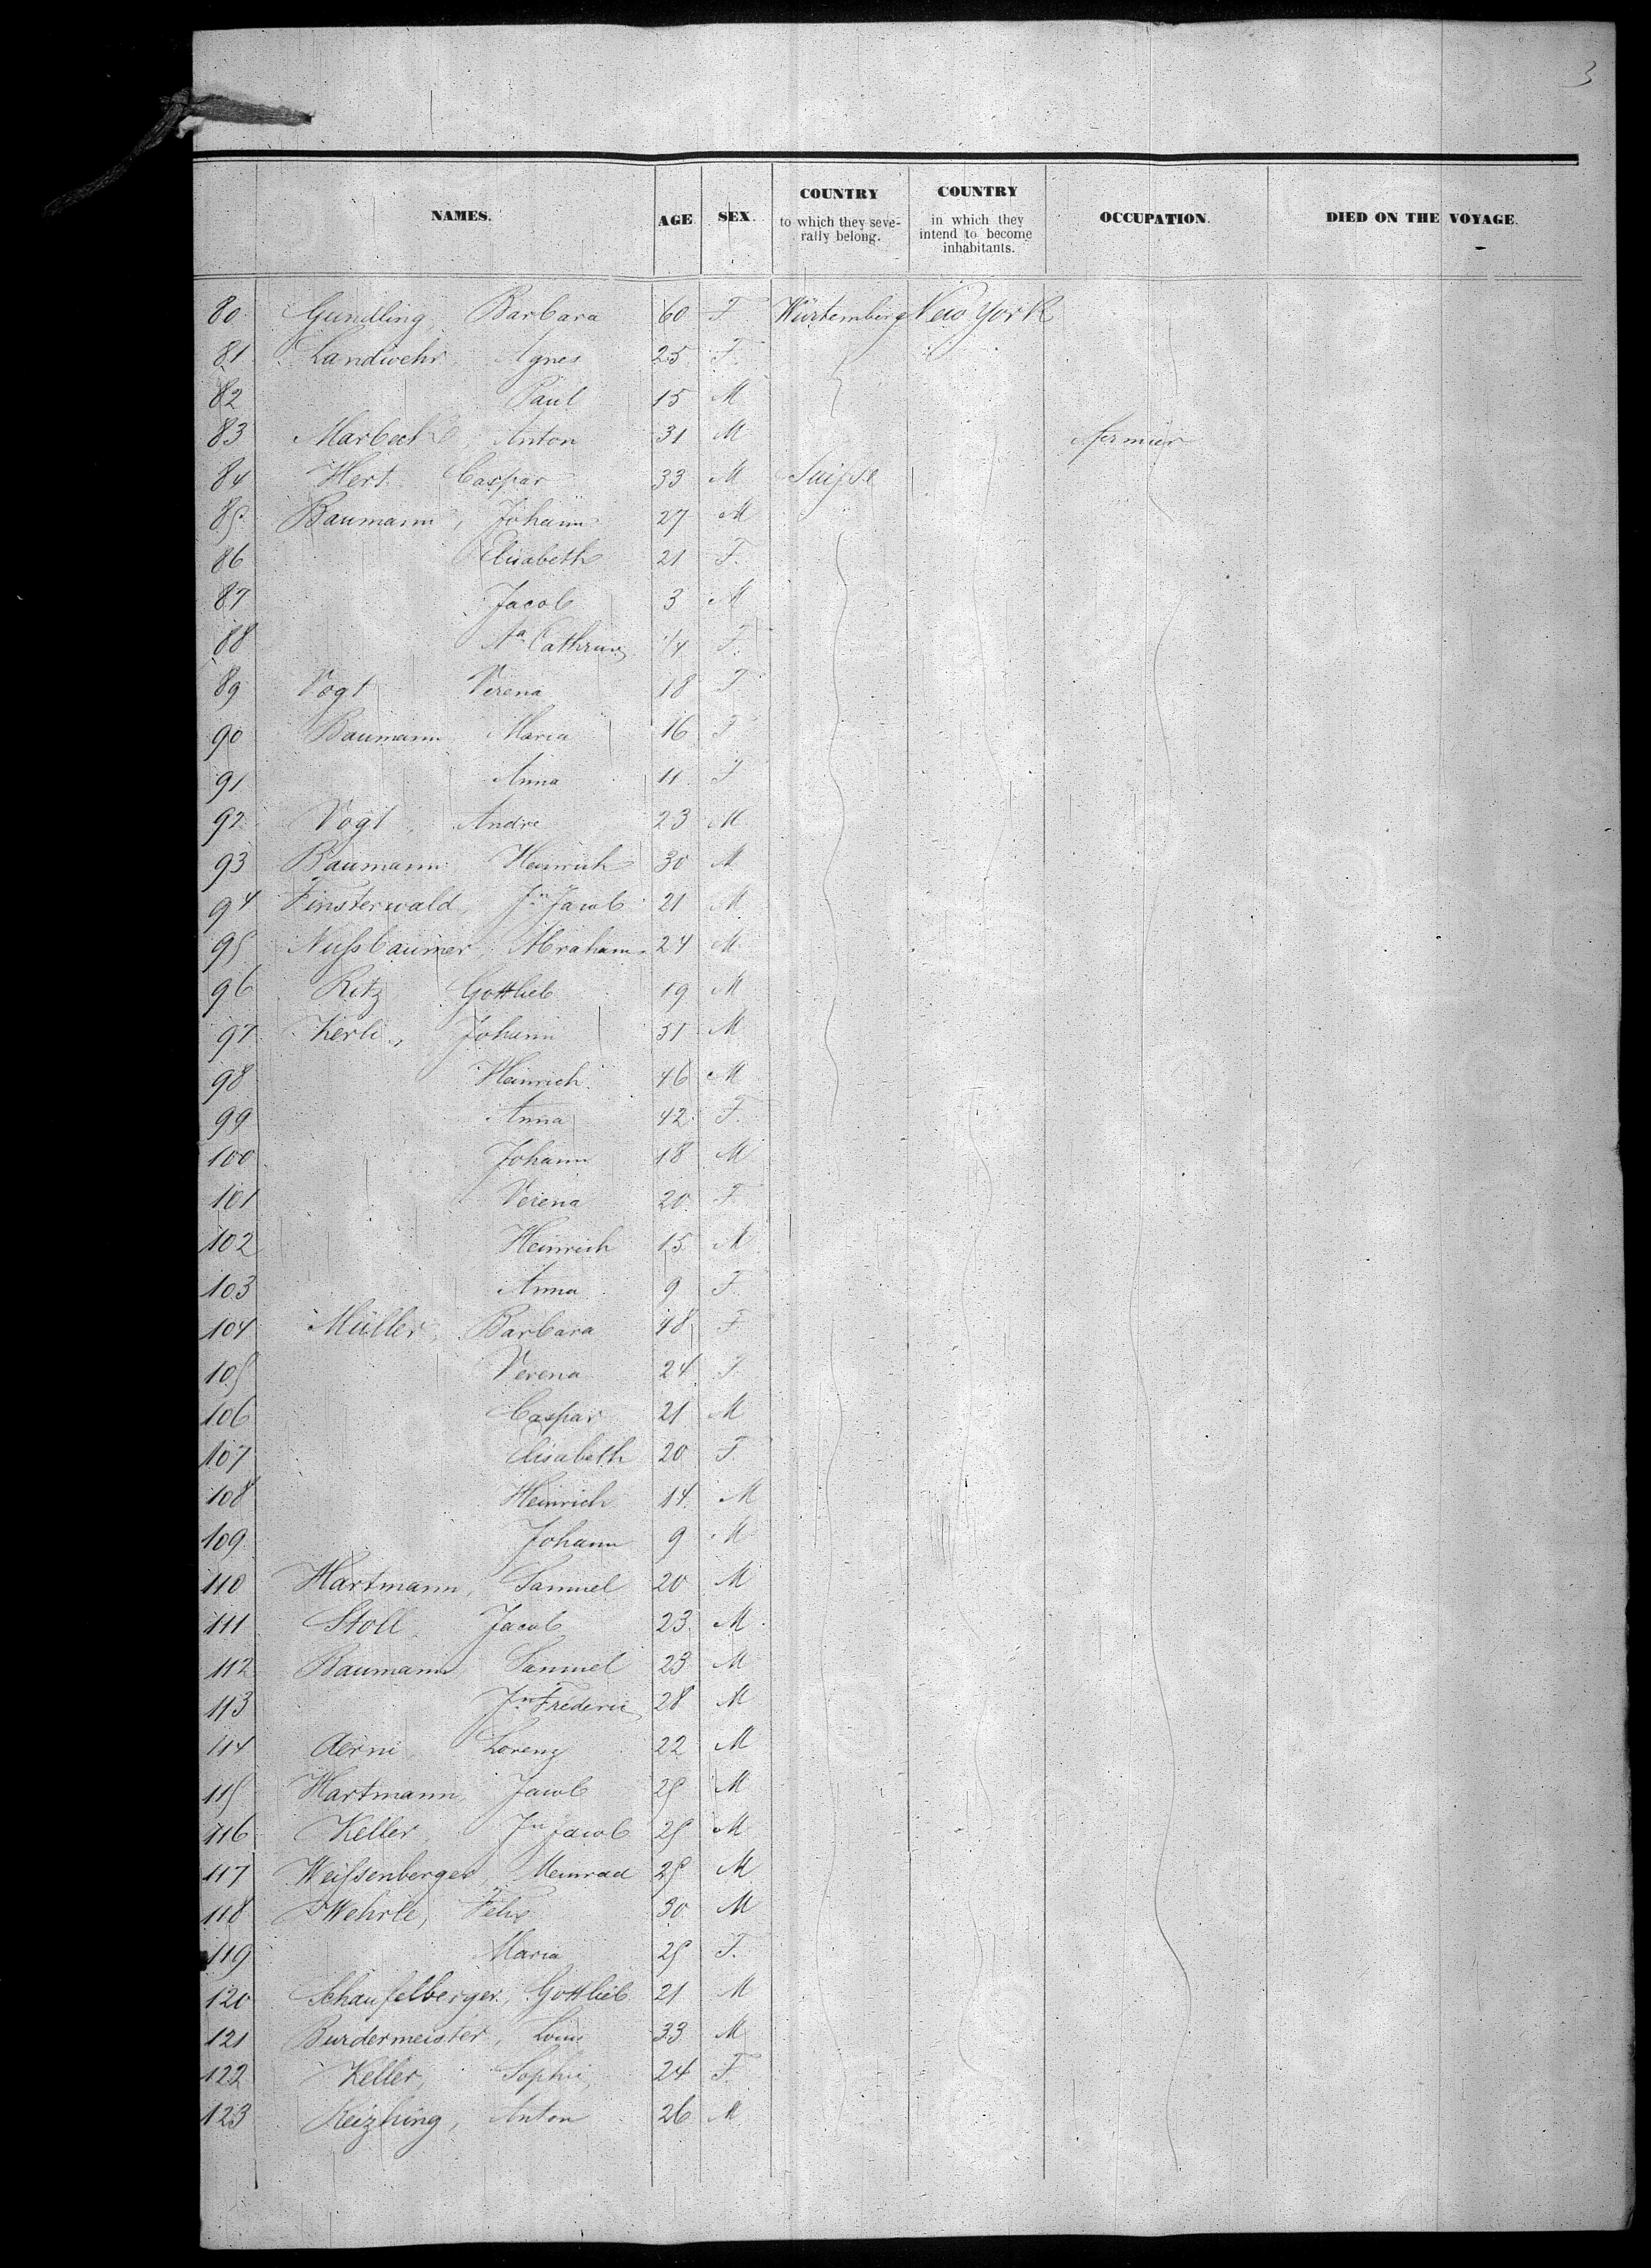 3
NAMES. AGE. SEX. COUNTRY to which they severally belong. COUNTRY in which they intend to become inhabitants. OCCUPATION. DIED ON THE VOYAGE.
80 Gundling, Barbara 60 F Würtemberg New York
81 Landwehr Agnes 25 F.
82 Paul 15 M
83 Marbach, Anton 31 M fermier
84 Hert Caspar 33 M Suisse
85 Baumann, Johann 27 M
86 Elisabeth 21 F.
87 Jacob 3 M
88 Aa Cathrine 1/4 F.
89 Vogt Verena 18 F
90 Baumann Maria 16 F
91 Anna 11 F
92 Vogt, Andre 23 M
93 Baumann Heinrich 30 M
94 Finsterwald, Jn Jacob 21 M
95 Nussbaumer, Abraham 24 M
96 Ritz Gottlieb 19 M
97 Kerli, Johann 51 M
98 Heinrich 46 M
99 Anna 42 F.
100 Johann 18 M
101 Verena 20 F
102 Heinrich 15 M
103 Anna 9 F.
104 Müller, Barbara 48 F
105 Verena 24 F
106 Caspar 21 M
107 Elisabeth 20 F.
108 Heinrich 14 M
109 Johann 9 M
110 Hartmann, Samuel 20 M
111 Stoll Jacob 23 M
112 Baumann Samuel 23 M
113 Jn Frederic 28 M
114 Aerni, Lorenz 22 M
115 Hartmann, Jacob 25 M
116 Keller, Jn Jacob 25 M
117 Weissenberger, Meinrad 25 M
118 Wehrle, Felix 30 M
119 Maria 25 F.
120 Schaufelberger, Gottlieb 21 M
121 Burdermeister, Louis 33 M
122 Keller, Sophie 24 F.
123 Anton 26 M